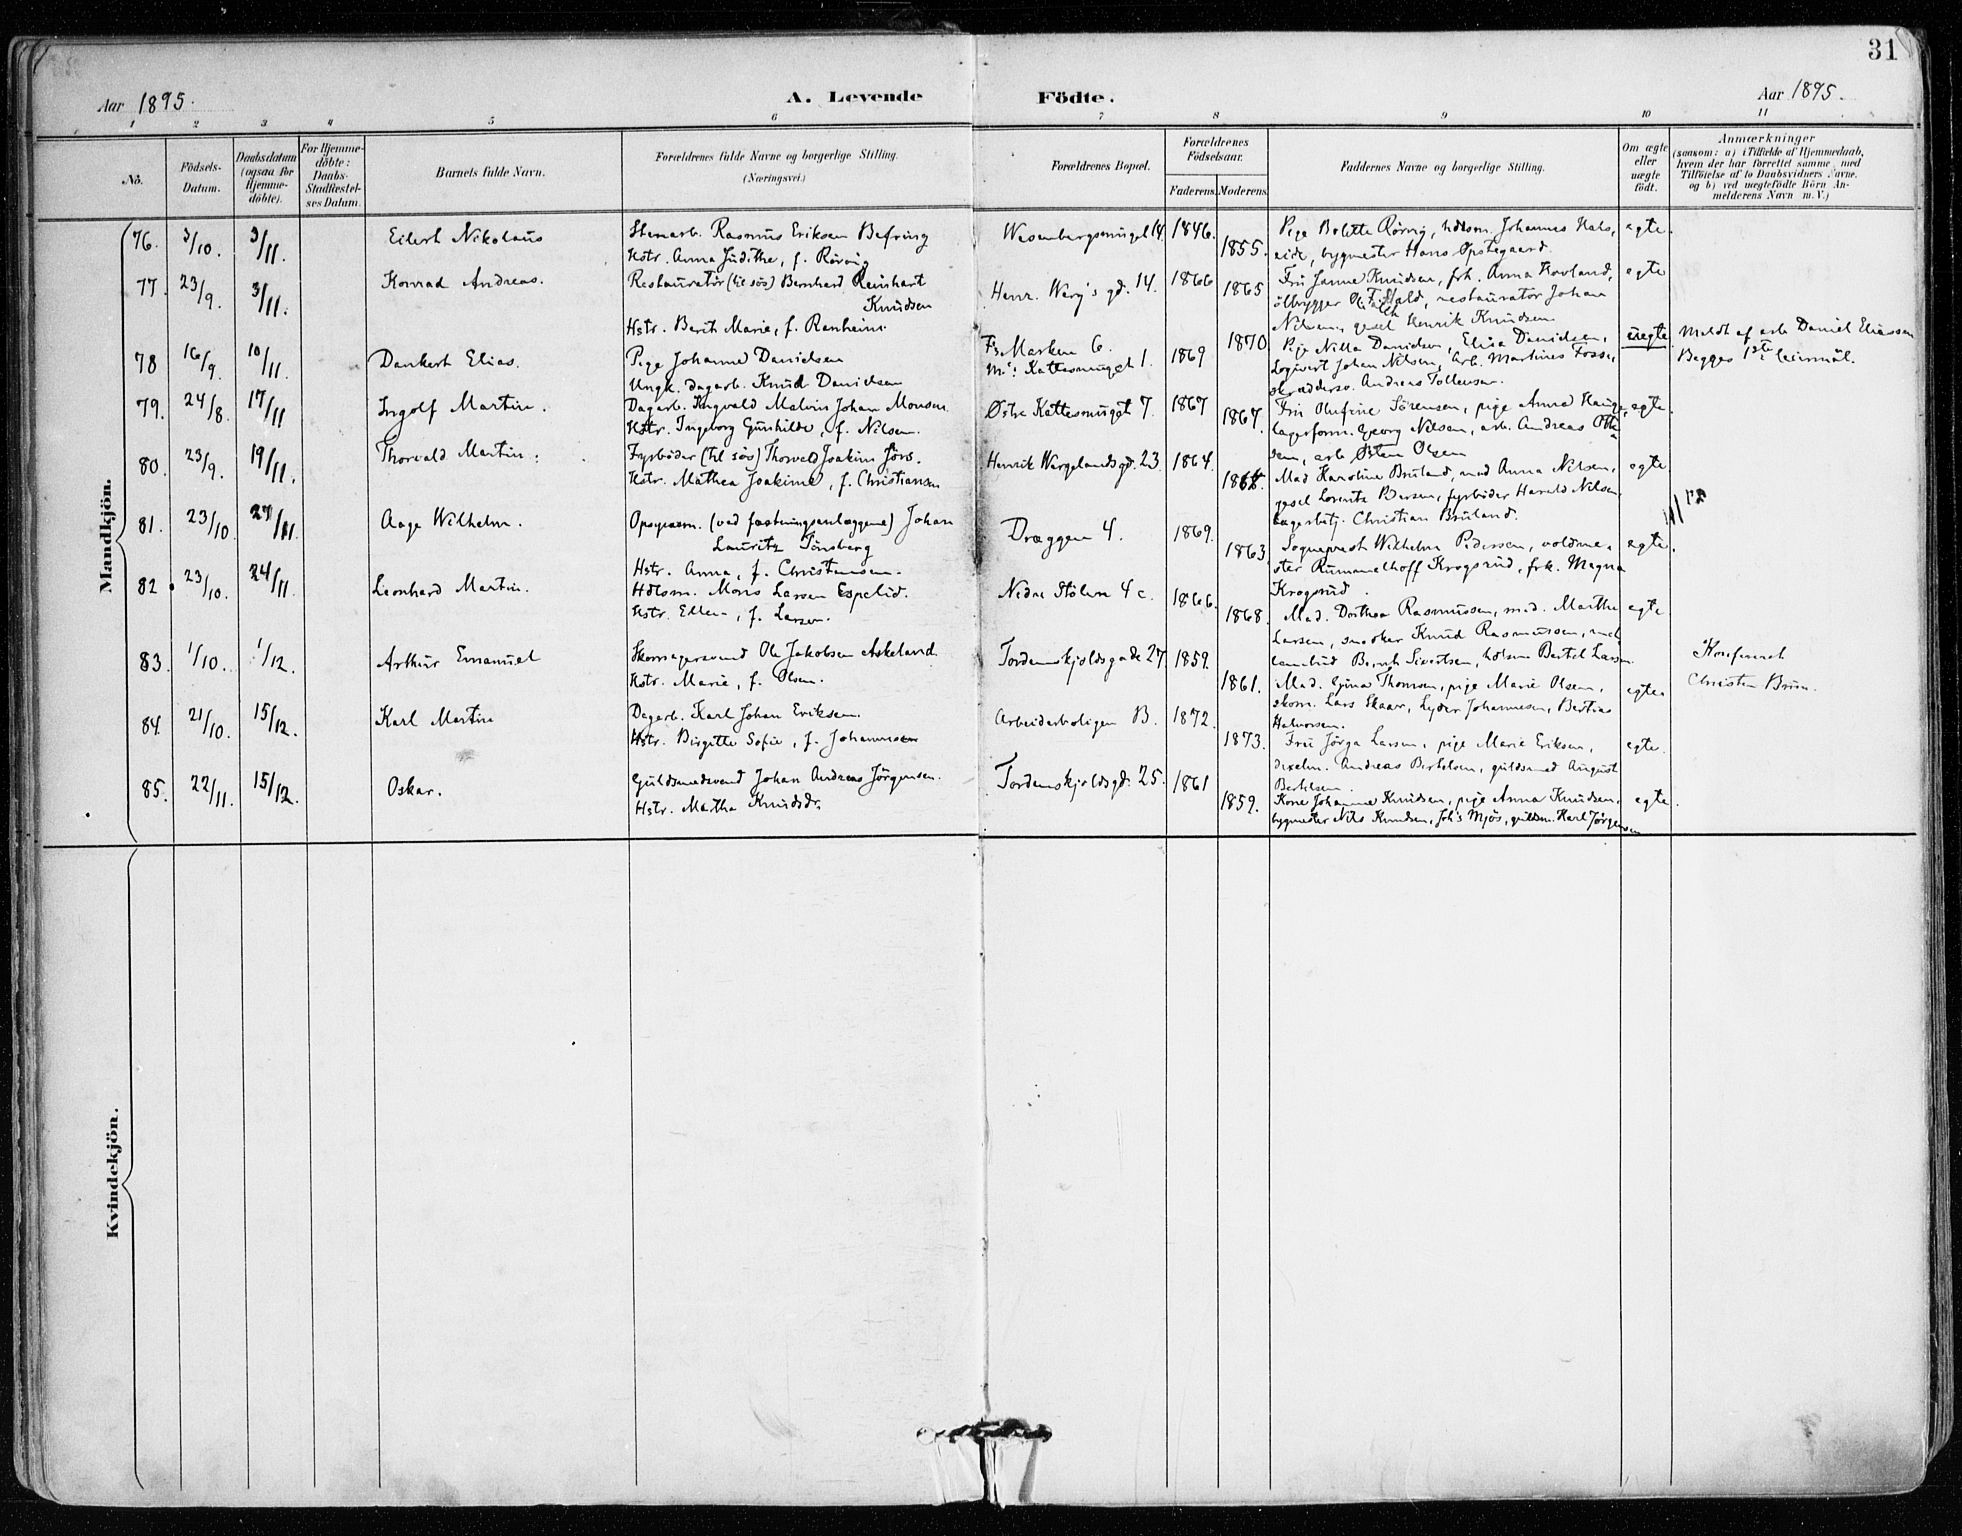 31
Aar 1895.
A. Levende Födte.
Aar 1895.
1 2 3 4 5 6 7 8 9 10 11
No.
Födsels-Datum.
Daabsdatum (ogsaa for Hjemme-döbte).
For Hjemme-döbte: Daabs-Stadfæstel-ses Datum.
Barnets fulde Navn.
Forældrenes fulde Navne og borgerlige Stilling.
(Næringsvei.)
Forældrenes Bopæl.
Forældrenes Födselsaar.
Faderens. Moderens.
Faddernes Navne og borgerlige Stilling.
Om ægte eller uægte födt.
Anmærkninger
(saasom: a) i Tilfælde af Hjemmedaab, hvem der har forrettet samme, med Tilföielse af to Daabsvidners Navne, og b) ved uægtefödte Börn An-melderens Navn m. V.)
Mandkjön.
76. 3/10. 3/11. Eilert Nikolaus
Stenarb. Rasmus Eriksen Befring
Hstr. Anna Judithe, f. Rörvig
Wesenbergsmuget 14. 1846. 1855.
Pige Bolette Rörvig, hdlsm. Johannes Hals,
eide, bygmester Hans Opstegaard.
egte.
77. 23/9. 3/11. Konrad Andreas.
Restauratör (til sös) Bernhard Reinhart
Knudsen
Hstr. Berit Marie, f. Ranheim.
Henr. Werg's gd. 14. 1866 1865
Fru Janne Knudsen, frk. Anna Hovland,
restauratör Johan
Nilsen, gesel Henrik Knudsen
egte
78 16/9. 10/11. Dankert Elias.
Pige Johanne Danielsen
Ungk. dagarb. Knud Danielsen
Fs Marken 6.
Ms: Kattesmuget 1. 1869 1870
Pige Nilla Danielsen, Elisa Danielsen,
Logivert Johan Nilsen, arb. Martines Fosse,
skræddersv. Andreas Tollensen.
uegte
Meldt af arb Daniel Eliassen
Begges 1ste leiermål.
79. 24/8. 17/11 Ingolf Martin.
Dagarb. Ingvald Malvin Johan Monsen
Hstr. Ingeborg Gunhilde, f. Nilsen.
Östre Kattesmuget 7. 1867 1867.
Fru Olufine Sörensen, pige Anna Hauge,
lagerform. Georg Nilsen, arb. Andreas Otte
sen, arb Östen Olsen
egte.
80. 23/9. 19/11. Thorvald Martin.
Fyrböder (til sös) Thorvald Joakim Jörs.
Hstr. Mathea Joakime, f. Christiansen
Henrik Wergelandsgd. 23. 1864.
Mad Karoline Bruland, mad Anna Nilsen,
gesel Lorentz Pedersen, fyrböder Harald Nilsen,
lagerbetj. Christian Bruland.
egte
81. 23/10. 24/11. Aage Wilhelm.
Opsynsm. (ved fæstningsanlæggene) Johan
Lauritz Tönsberg
Hstr. Anna, f. Christensen.
Dræggen 4. 1869. 1863.
Sogneprest Wilhelm Pedersen, voldme-
ster Rummelhoff Krogsrud, frk. Magna
Krogsrud.
egte.
82 23/10. 24/11. Leonhard Martin.
Hdlsm. Mons Larsen Espelid.
Hstr. Ellen, f. Larsen.
Nedre Stölen 4 c. 1866. 1868.
Mad. Dorthea Rasmussen, mad. Marthe
Larsen, snedker Knud Rasmussen,
Bernh Sivertsen, hdlsm Bertel Larsen
egte
83. 1/10. 1/12. Arthur Emanuel
Skomagersvend Ole Jakobsen Askeland.
Hstr. Marie, f. Olsen.
Tordenskjoldsgade 27 1859. 1861.
Mad. Gina Thomsen, pige Marie Olsen,
skom. Lars Skaar, Lyder Johannesen, Bertius
Halvorsen.
egte.
Christen Brun.
84. 21/10. 15/12. Karl Martin
Dagarb. Karl Johan Eriksen.
Hstr. Birgitte Sofie, f. Johannesen
Arbeiderboligen B. 1872. 1873.
Fru Jörga Larsen, pige Marie Eriksen,
dixelm. Andreas Bertelsen, guldsmed August
Bertelsen.
egte.
85. 22/11. 15/12. Oskar.
Guldsmedsvend Johan Andreas Jörgensen.
Hstr. Martha Knudsdr.
Tordenskjoldsgd. 25. 1861 1859.
Kone Johanne Knudsen, pige Anna Knudsen,
bygmester Nils Knudsen, Joh's Mjös, guldsm. Karl Jörgensen
egte.
Kvindekjön.